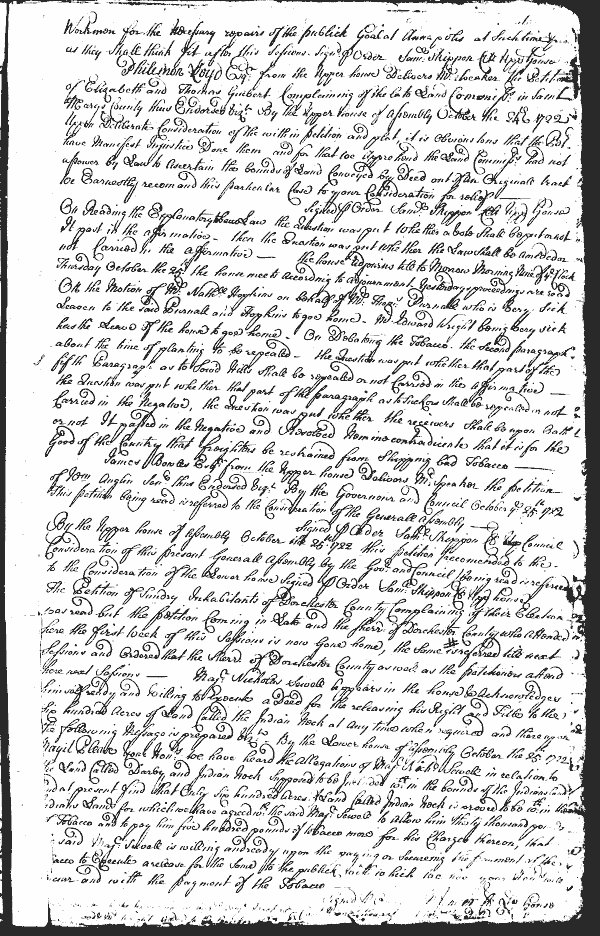 Workmen for the necessary repairs of the publick Goal at Annapolis at Such time &
as they Shall think fit after this Sessions. Signd p Order Saml Skippon Cl Uppr house
Philemon Lloyd Esqr from the Upper house Delivers Mr Speaker the Petition
of Elizabeth and Thomas Guibert Complaining of the late Land Commissrs in Saint
Marys County thus Endorsed Vizt By the Upper house of Assembly October the 24th 1722
Upon Deliberate Consideration of the within petition and plat, it is obvious to us that the Petrs
have Manifest Injustice Done them and for that we apprehend the Land Commissrs had not
a power by Law to Ascertain the bounds of Land Conveyed by Deed out of an Originall tract
we Earnestly recommend this particular Case to your Consideration for relief
Signed p Order Saml Skippon Cl Uppr House
On Reading the Explanatory Law the Question was put whether a Vote Shall be put or not
It past in the affirmative - then the Question was put whether the Law shall be amended or
not Carried in the affirmative - the house adjourns till to Morrow Morning Nine of ye Clock
Thursday October the 25th the house meets According to adjournment. Yesterdays proceedings are read
On the Motion of Mr Nathll Hopkins on behalf of Mr Thos Purnall who is Very Sick
Leave to the said Purnall and Hopkins to goe home. Mr Edward Wright being very sick
has the Leave of the house to goe home. - On Debating the Tobacco the Second paragraph
about the time of planting to be repealed - the Question was put whether that part of the
fifth Paragraph as to Shall be repealed or not Carried in the affirmative -
the Question was put whether that part of the paragraph as to Suckers Shall be repealed or not
Carried in the Negative, the Question was put whether the receivers Shall be upon Oath
or not It passed in the Negative and Resolved Nemine contradicente that it is for the
Good of the Country that freighters be restrained from Shipping bad Tobacco
James Bowles Esqr from the Upper house Delivers Mr Speaker the petition
of Wm Anglin Senr thus Endorsed Vizt By the Governour and Council October ye 25th 1722
This petition being read is referred to the Consideration of the Generall Assembly -
Signed p Order Saml Skippon Cl Council
By the Upper house of Assembly October the 25th 1722 this petition recomended to the
Consideration of this present Generall Assembly by the Govr and Council being read is referred
to the Consideration of the Lower house Signed p Order Saml Skippon Cl Uppr house
The Petition of Sundry Inhabitants of Dorchester County Complaining of their Election
was read but the petition Coming in Late and the Sherrif of Dorchester County who Attended
here the first Week of this Sessions is now Gone home, the Same is referred till next
Sessions and Ordered that the Sherrif of Dorchester County as well as the petitioners attend
here next Sessions - Majr Nicholas Sewell appears in the house & Acknowledges
himself ready and Willing to Execute a Deed for the releasing his Right and Title to the
Six hundred Acres of Land Called the Indian Neck at Any time when required and thereupon
the following Message is prepared Vizt By the Lower house of Assembly October the 25th 1722
May it Please your Honrs we have heard the Allegations of Majr Nichs Sewell in relation to
the Land Called Darby and Indian Neck Supposed to be Included within the bounds of the Indians Land
and at present find that Only Six hundred Acres of Land Called Indian Neck is proved to be within
Indians Land for which we have agreed with the said Majr Sewell to Allow him thirty thousand pounds
of Tobacco and to pay him five hundred pounds of tobacco more for his Charges thereon, that
said Majr Sewell is willing and ready upon the paying or Securing the payment of the
Tobacco to Execute a release for the Same to the publick
concur and with the payment of the Tobacco
Signed p Order